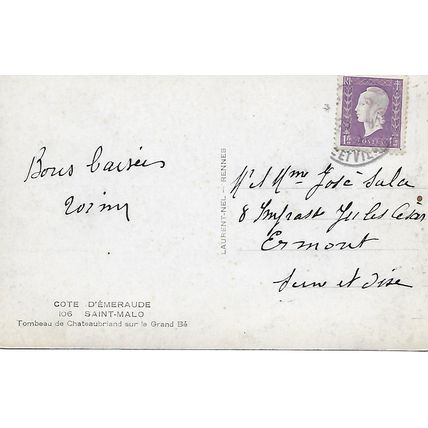 Bons baisers
M et Mme José Sala
8 Impasse Jules César
Ermont
Seine et Oise
LAURENT-NEL – RENNES
COTE D'ÉMERAUDE
106 SAINT-MALO
Tombeau de Chateaubriand sur le Grand Bé
RF
POSTES